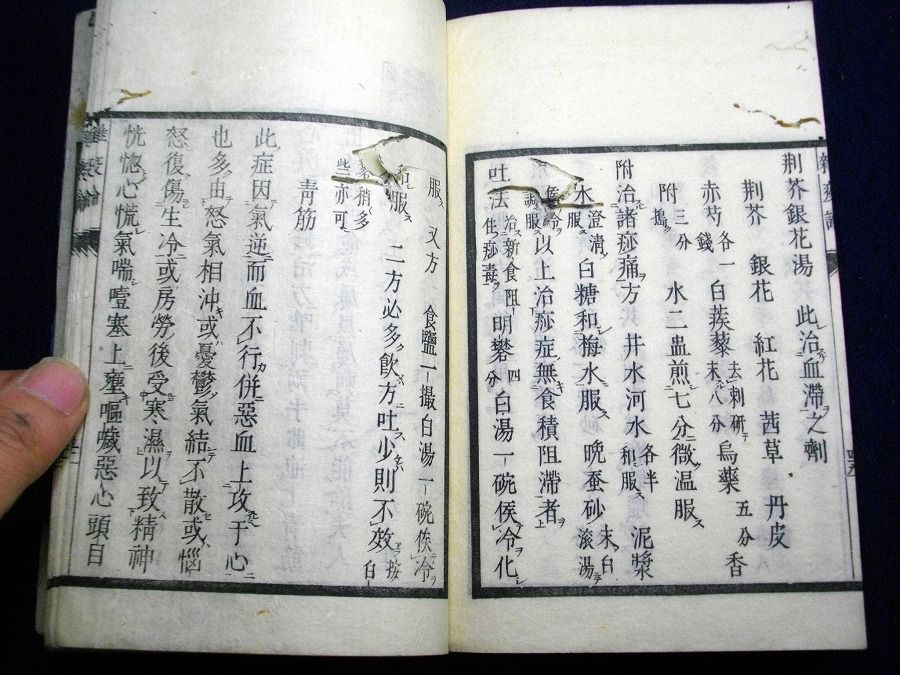 荆芥銀花湯 此治血滯之劑
荆芥 銀花 紅花 茜草 丹皮
赤芍各一錢 白蒺藜去刺研末八分 烏藥五分 香
附三分搗 水二盅煎七分微温服
附治諸痧痛方 井水河水各半和服 泥漿
水澄清服 白糖和梅水服 晩蚕砂末白滚湯
冷調服 以上治痧症無食積阻滯者
吐法治新食阻住痧毒 明礬四分 白湯一碗俟冷化
服 又方 食鹽一撮白湯一碗俟冷
服 二方必多飲方吐少則不效白按
稍多些亦可
青筋
此症因氣逆而血不行併惡血上攻于心
也多由怒氣相沖或憂鬱氣結不散或惱
怒復傷生冷或房勞後受寒濕以致精神
恍惚心慌氣喘噎塞上壅嘔噦惡心頭目